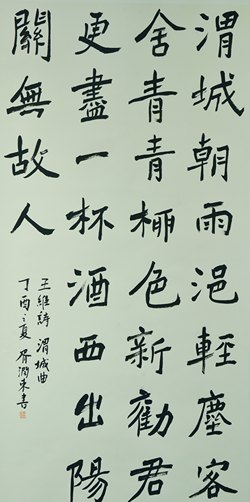 渭城朝雨浥輕塵客
舍青青柳色新勸君
更盡一杯酒西出陽
關無故人
王維詩 渭城曲
丁酉之夏 胥潤東書